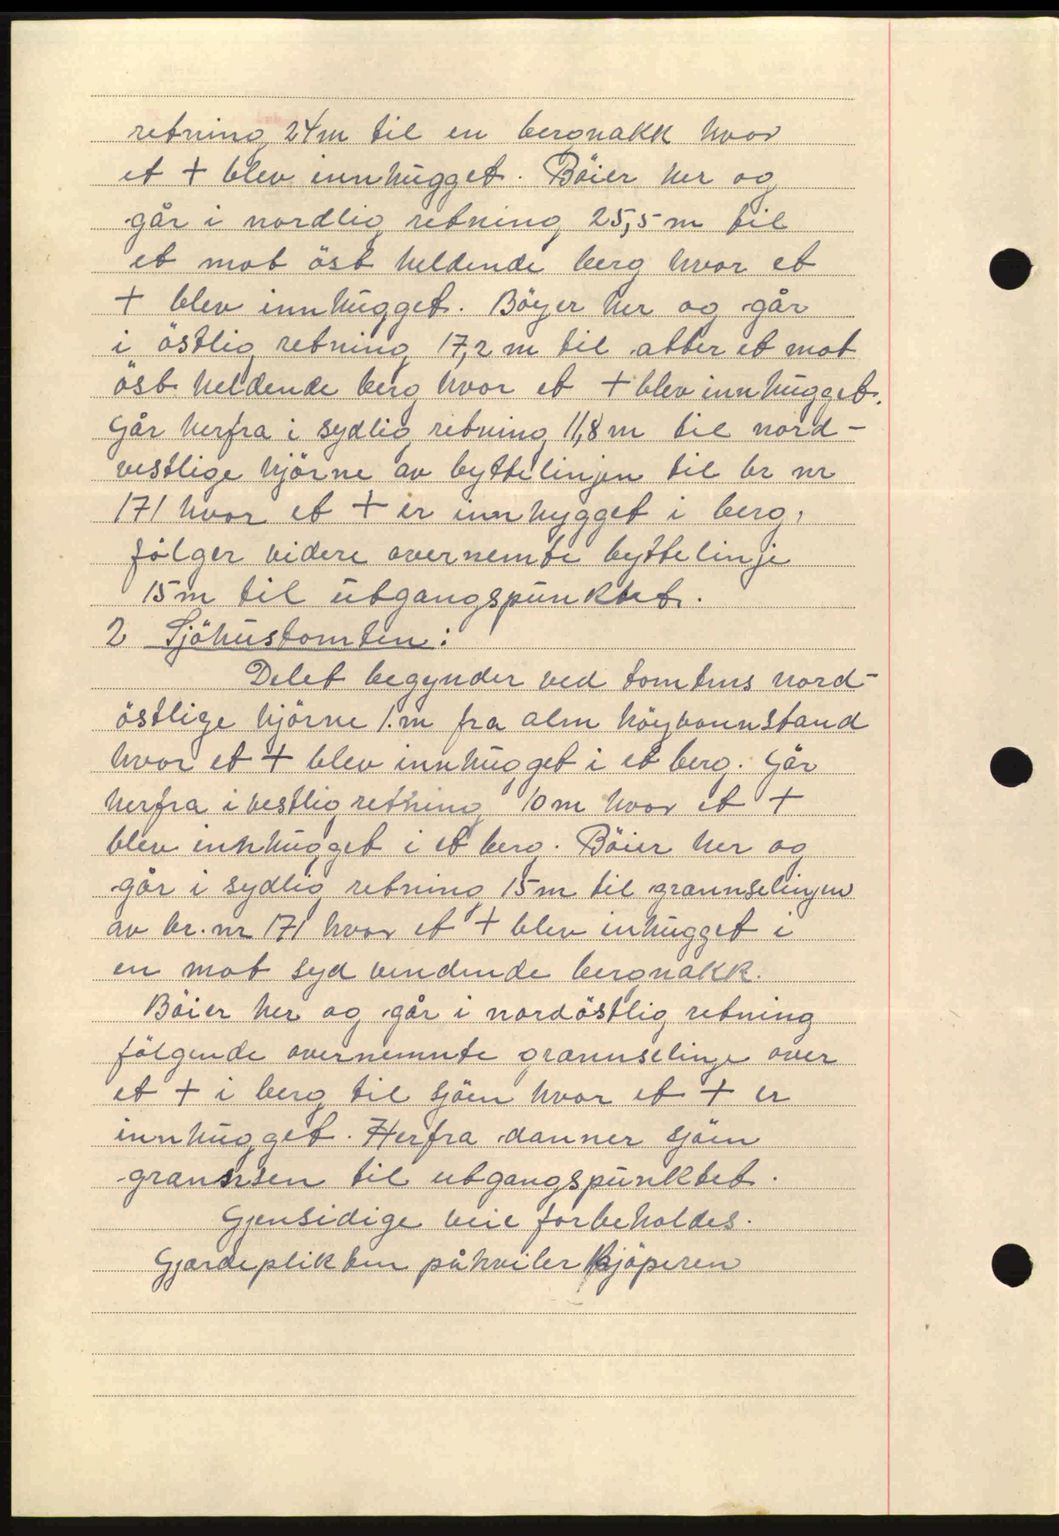 retning 24m til en bergnakk hvor
et + blev innhugget. Böier her og
går i nordlig retning 25,5 m til
et mot öst heldende berg hvor et
+ blev innhugget. Böyer her og går
i östlig retning 17,2 m til atter et mot
öst heldende berg hvor et + blev innhugget.
Går herfra i sydlig retning 11,8 m til nord-
vestlige hjörne av byttelinjen til br nr
171 hvor et + er innhygget i berg,
fölger videre overnemte byttelinje
15m til utgangspunktet.
2 Sjöhustomten:
Delet begynder ved tomtens nord-
östlige hjörne 1 m fra alm höyvannstand
hvor et + blev innhugget i et berg. Går
herfra i vestlig retning 10m hvor et +
blev innhugget i et berg. Böier her og
går i sydlig retning 15m til grannselinjen
av br. nr 171 hvor et + blev inhugget i
en mot syd vendende bergnakk.
Böier her og går i nordöstlig retning
fölgende overnemnte grannselinje over
et + i berg til sjöen hvor et + er
innhugget. Herfra danner sjöen
grannsen til utgangspunktet.
Gjensidige veie forbeholdes.
Gjærdeplikten påhviler kjöperen